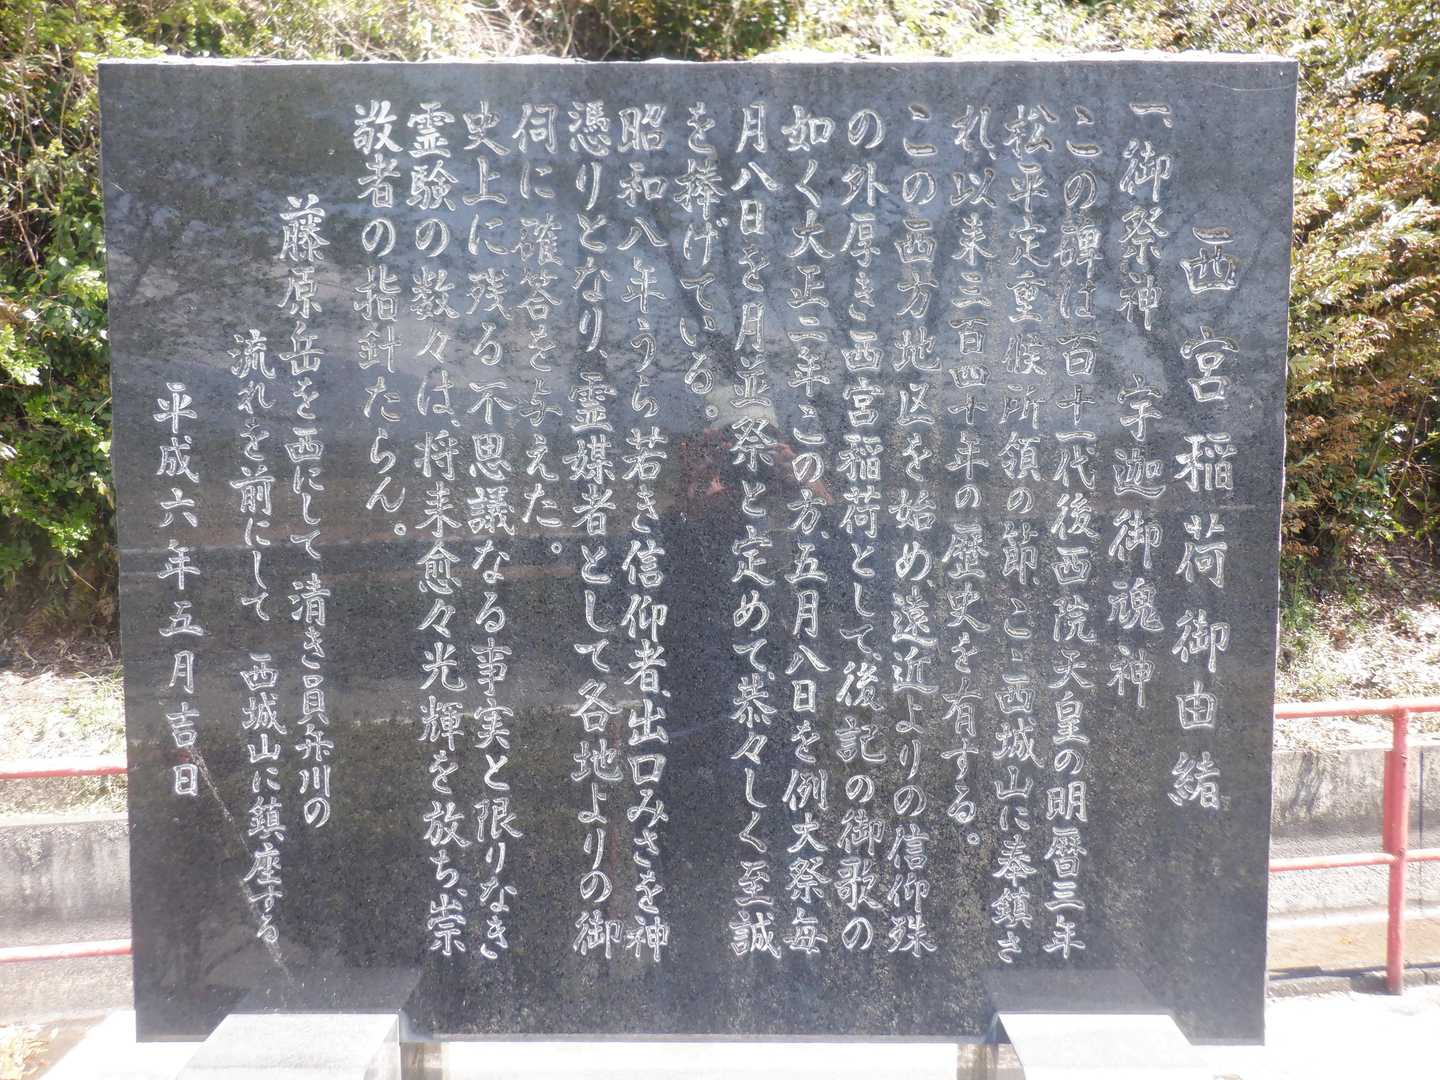 西宮稲荷御由緒
一、御祭神　宇迦御魂神
この碑は百十一代後西院天皇の明暦三年
松平定重候所領の節、ここ西城山に奉鎮さ
れ、以来三百四十年の歴史を有する。
この西方地区を始め、遠近よりの信仰殊
の外厚き西宮稲荷として、後記の御歌の
如く大正二年この方、五月八日を例大祭毎
月八日を月並祭と定めて、恭々しく至誠
を捧げている。
昭和八年うら若き信仰者、出口みさを神
憑りとなり、霊媒者として各地よりの御
伺に確答を与えた。
史上に残る不思議なる事実と限りなき
霊験の数々は、将来愈々光輝を放ち、崇
敬者の指針たらん。
藤原岳を西にして　清き員弁川の
流れを前にして　西城山に鎮座する
平成六年五月吉日